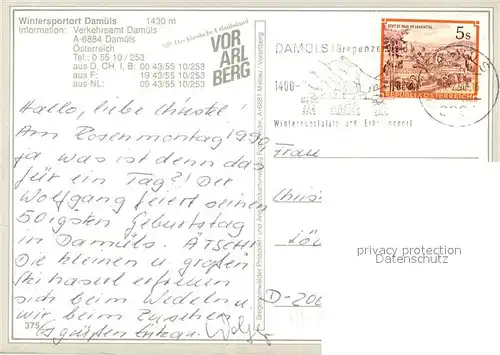 Wintersportort Damüls 1430 m
Information: Verkehrsamt Damüls
A-6884 Damüls
Österreich
Tel.: 0 55 10 / 253
aus D, CH, I, B: 00 43/55 10/253
aus F: 19 43/55 10/253
aus NL: 09 43/55 10/253
Das klassische Urlaubsland
VOR
ARL
BERG
STIFT ST. PAUL IM LAVANTTAL
5 S
REPUBLIK ÖSTERREICH
DAMÜLS
Bregenzerwald
1400-
Wintersportplatz und Erholungsort
Hallo, liebe Christel!
Am Rosenmontag 1990
ja was ist denn das
für ein Tag?! Der
Wolfgang feiert seinen
50igsten Geburtstag
in Damüls. ÄTSCH!
Die kleinen u. großen
Skihaserl erfreuen
sich beim Wedeln u.
wir beim Zusehen.
Es grüßen
375
A-6881 Mellau / Vorarlberg
Frau
D-200
privacy protection
Datenschutz